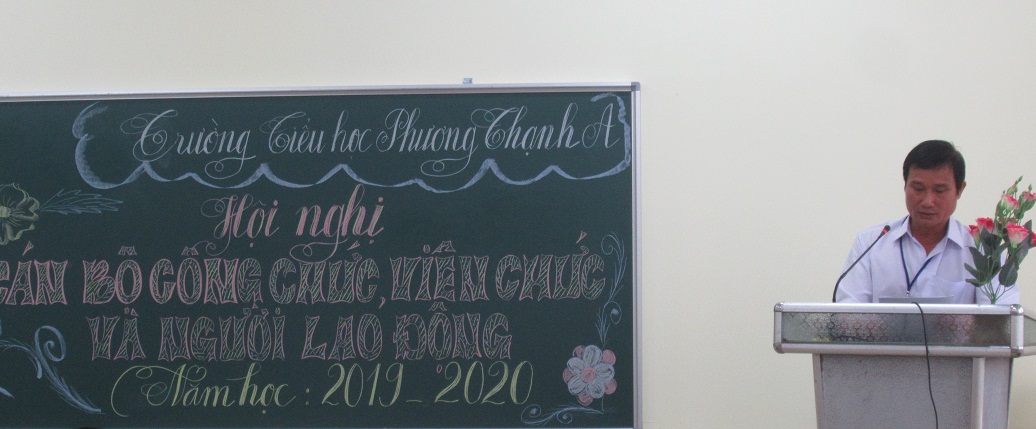 Trường Tiểu học Phương Thạnh A
Hội nghị
CÁN BỘ CÔNG CHỨC, VIÊN CHỨC
VÀ NGƯỜI LAO ĐỘNG
Năm học : 2019 - 2020